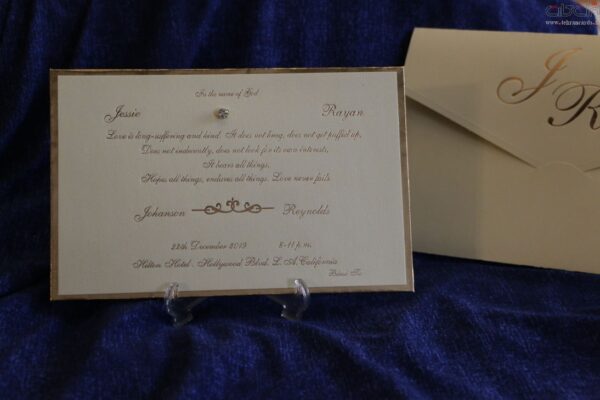 In the name of God
Jessie Rayan
Love is long-suffering and kind. It does not brag, does not get puffed up,
Does not indecently, does not look for its own interests,
It bears all things,
Hopes all things, endures all things. Love never fails.
Johanson Reynolds
22th December 2019 8-11 p.m.
Hilton Hotel- Hollywood Blvd. L. A. California
J
R
www.tehrancards.